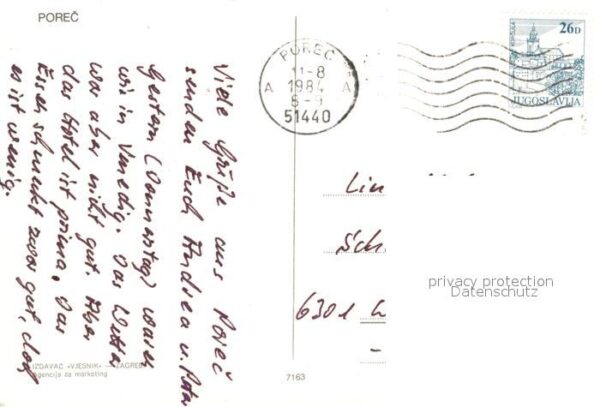 POREČ
Viele Grüße aus Poreč
senden Euch Andrea u. Peter
Gestern (Donnerstag) waren
wir in Venedig. Das Wetter
war aber nicht gut. Aber
das Hotel ist prima. Das
Essen schmeckt zwar gut, doch
es ist wenig.
IZDAVAČ »VJESNIK« — ZAGREB
agencija za marketing
7163
POREČ
11-8
A 1984 A
8-9
51440
26D
JUGOSLAVIJA
6301
privacy protection
Datenschutz